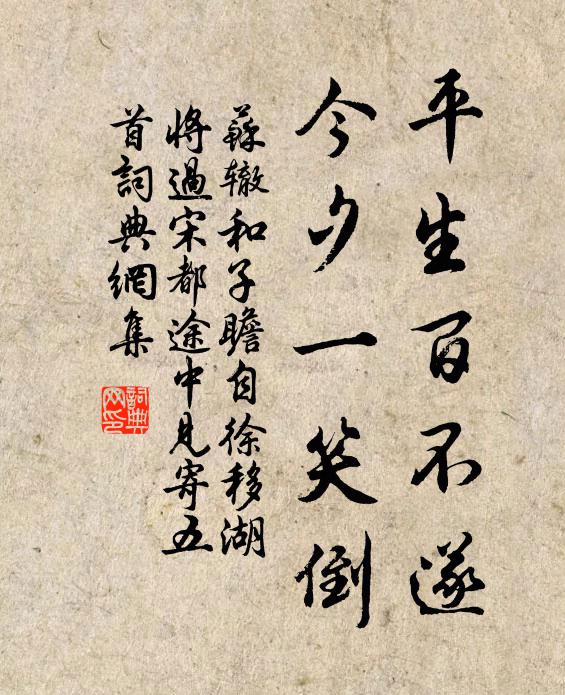 平生百不遂
今夕一笑倒
蘇辙和子瞻自徐移湖
將過宋都途中見寄五
首詞典網集
詞典
网印